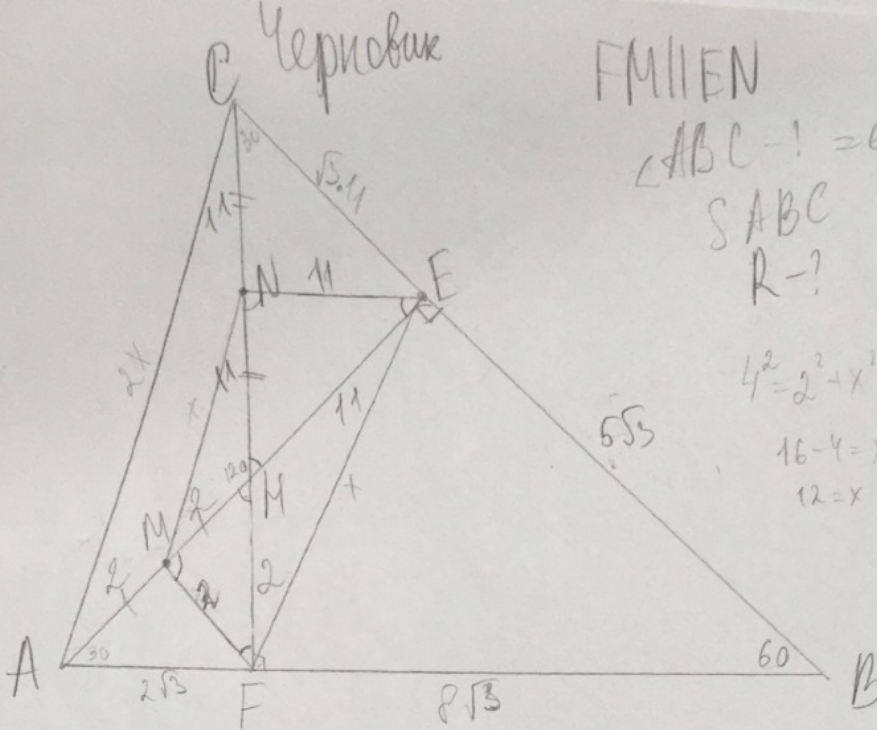 Черновик
FM||EN
∠ABC -! = 6
S ABC
R -?
4² = 2² + x²
16 - 4 =
12 = x
C
30
√3·11
11
N
11
E
2x
11
x
11
120
H
x
5√3
M
2
2
2
2
A
30
2√3
F
8√3
60
B